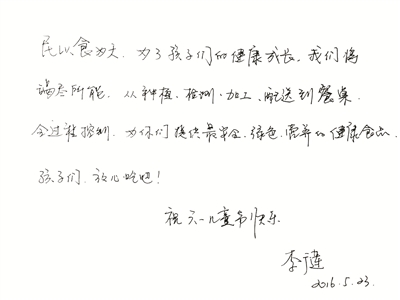 民以食为天.为了孩子们的健康成长,我们将
竭尽所能.从种植、检测、加工、配送到餐桌
全过程控制.为你们提供最安全、绿色、营养的健康食品.
孩子们.放心吃吧!
祝六一儿童节快乐
李蓮
2016.5.23.